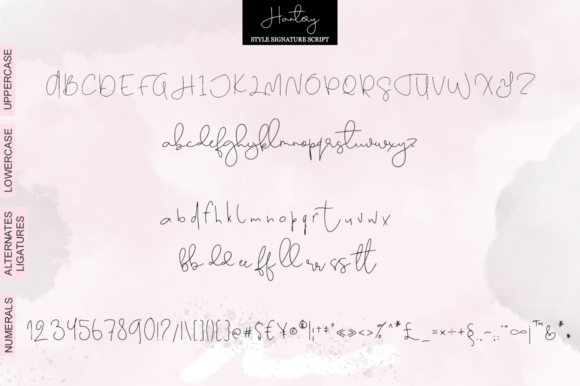 Hantoy
STYLE SIGNATURE SCRIPT
UPPERCASE
ABCDEFGHIJKLMNOPQRSTUVWXYZ
LOWERCASE
abcdefghijklmnopqrstuvwxyz
ALTERNATES
LIGATURES
abdfhklmnopqrtuvwx
bb dd ee ff ll rr ss tt
NUMERALS
1234567890!?/|\[](){}@#$£¥